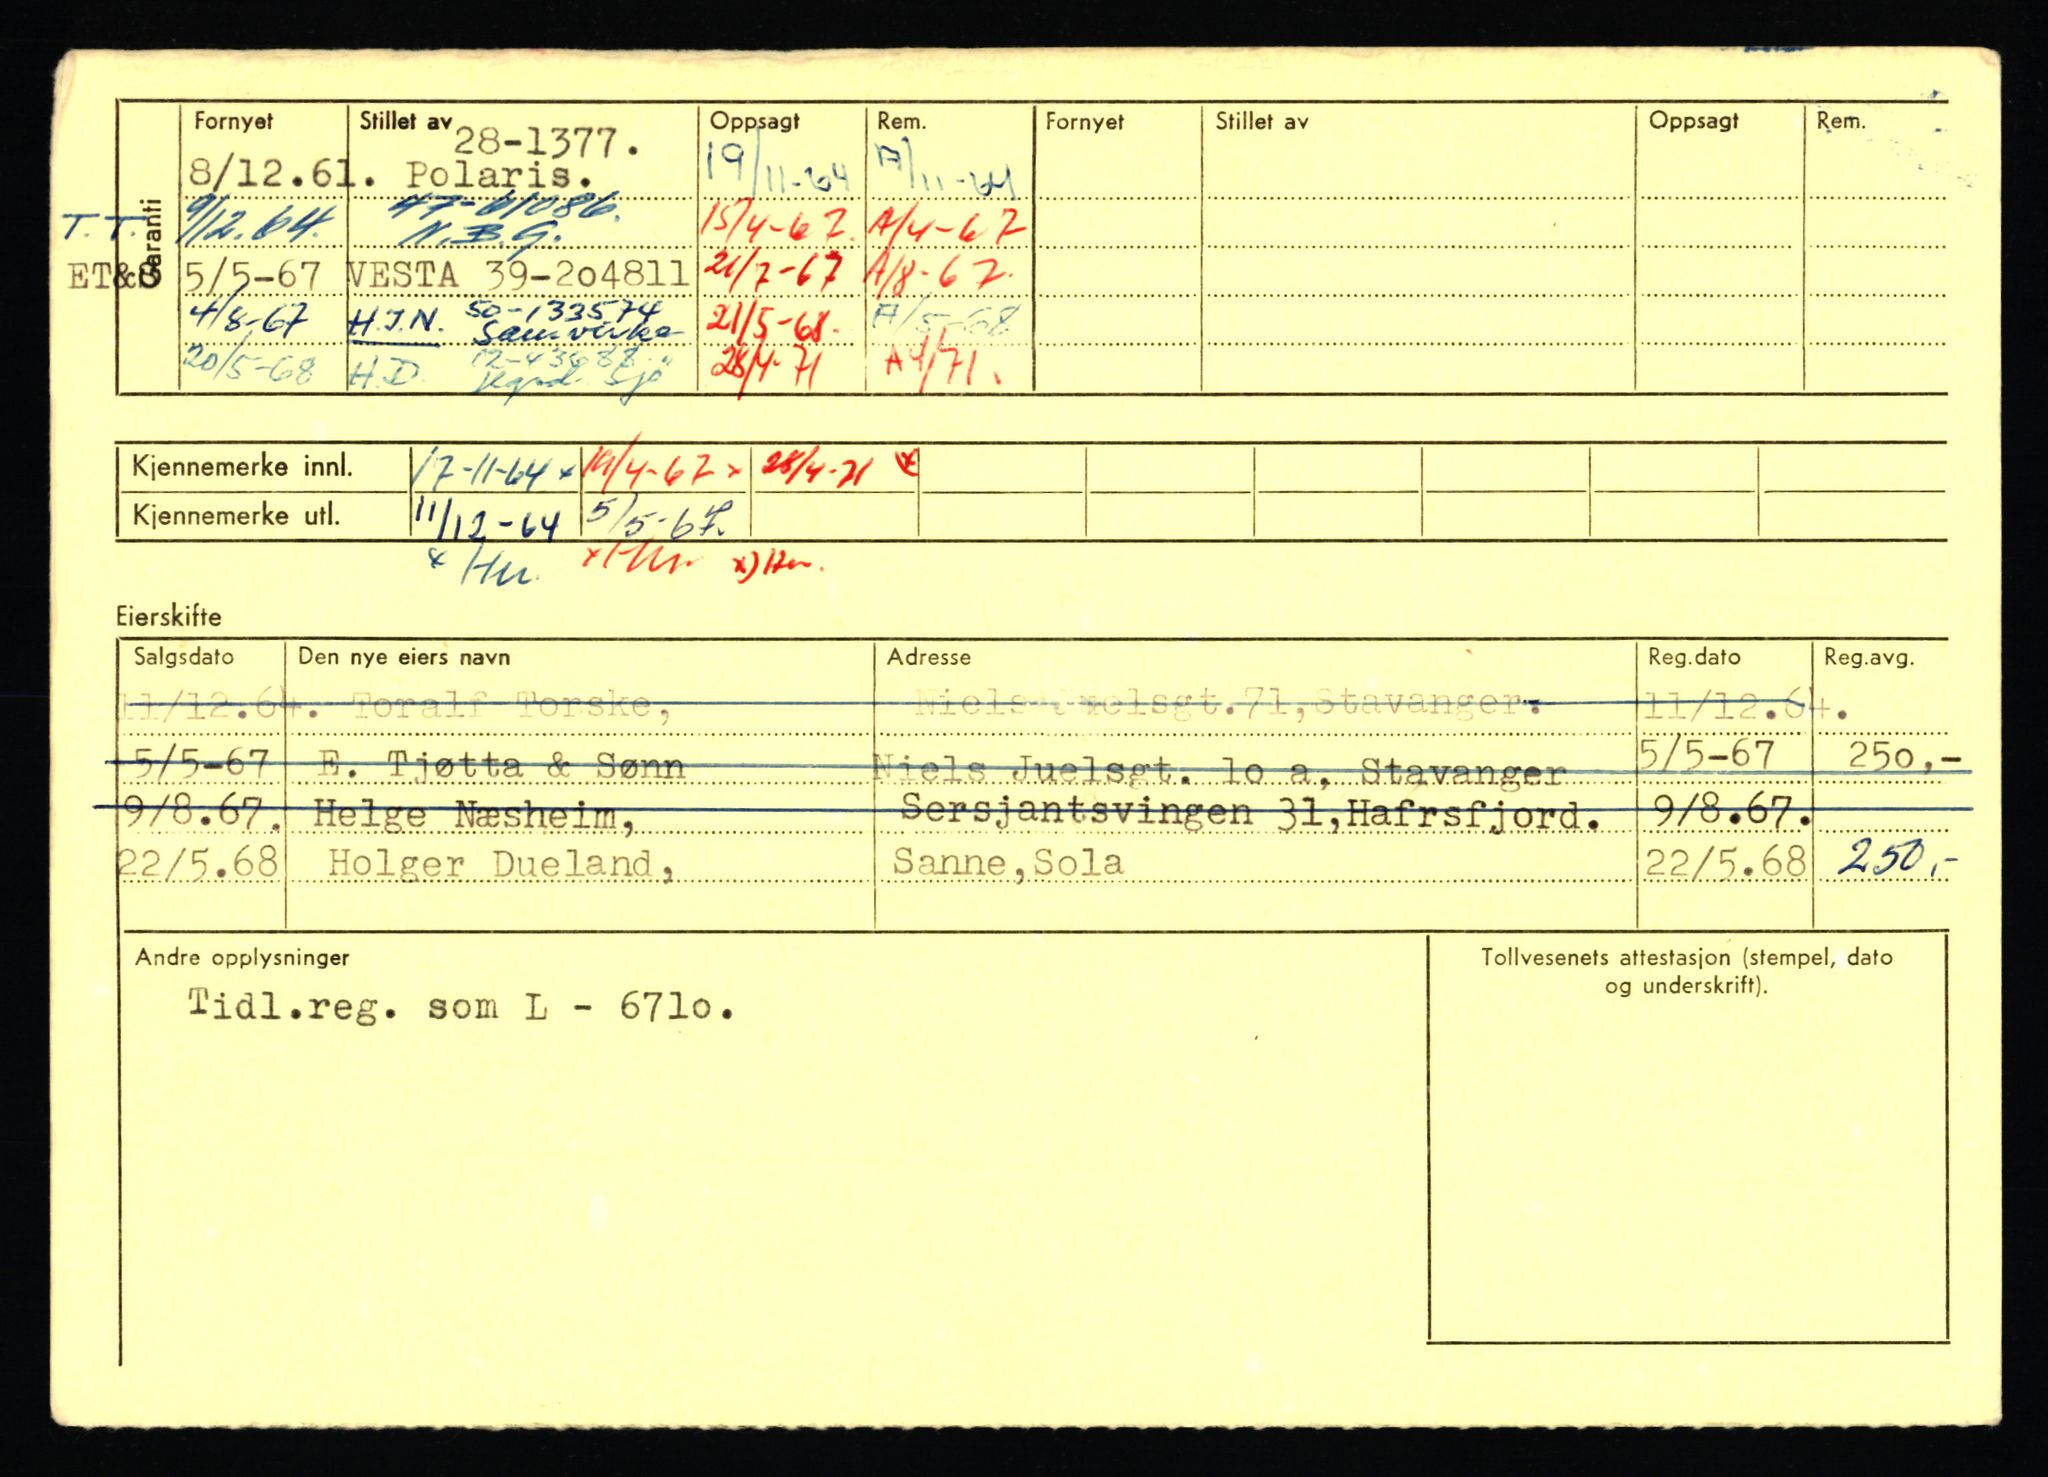 Fornyet Stillet av Oppsagt Rem. Fornyet Stillet av Oppsagt Rem.
Garanti
28-1377.
8/12.61. Polaris. 19/11-64 A/11-64
47-61086.
T.T. 9/12.64. N.B.G. 15/4-67. A/4-67
ET&S 5/5-67 VESTA 39-2o4811 21/7-67 A/8-67.
4/8-67 H.J.N. 50-133574 21/5-68. A/5-68
Samvirke
20/5-68 H.D. 28/4-71 A4/71.
Sjø
Kjennemerke innl. 17-11-64 x 19/4-67 x 28/4-71 x
Kjennemerke utl. 11/12-64 5/5-67.
x Hu. x Hu. x) Hu.
Eierskifte
Salgsdato Den nye eiers navn Adresse Reg.dato Reg.avg.
11/12.64. Toralf Torske, Niels Juelsgt.71,Stavanger. 11/12.64.
5/5-67 E. Tjøtta & Sønn Niels Juelsgt. 1o a, Stavanger 5/5-67 250,-
9/8.67. Helge Næsheim, Sersjantsvingen 31,Hafrsfjord. 9/8.67.
22/5.68 Holger Dueland, Sanne,Sola 22/5.68 250,-
Andre opplysninger
Tidl.reg. som L - 671o.
Tollvesenets attestasjon (stempel, dato
og underskrift).